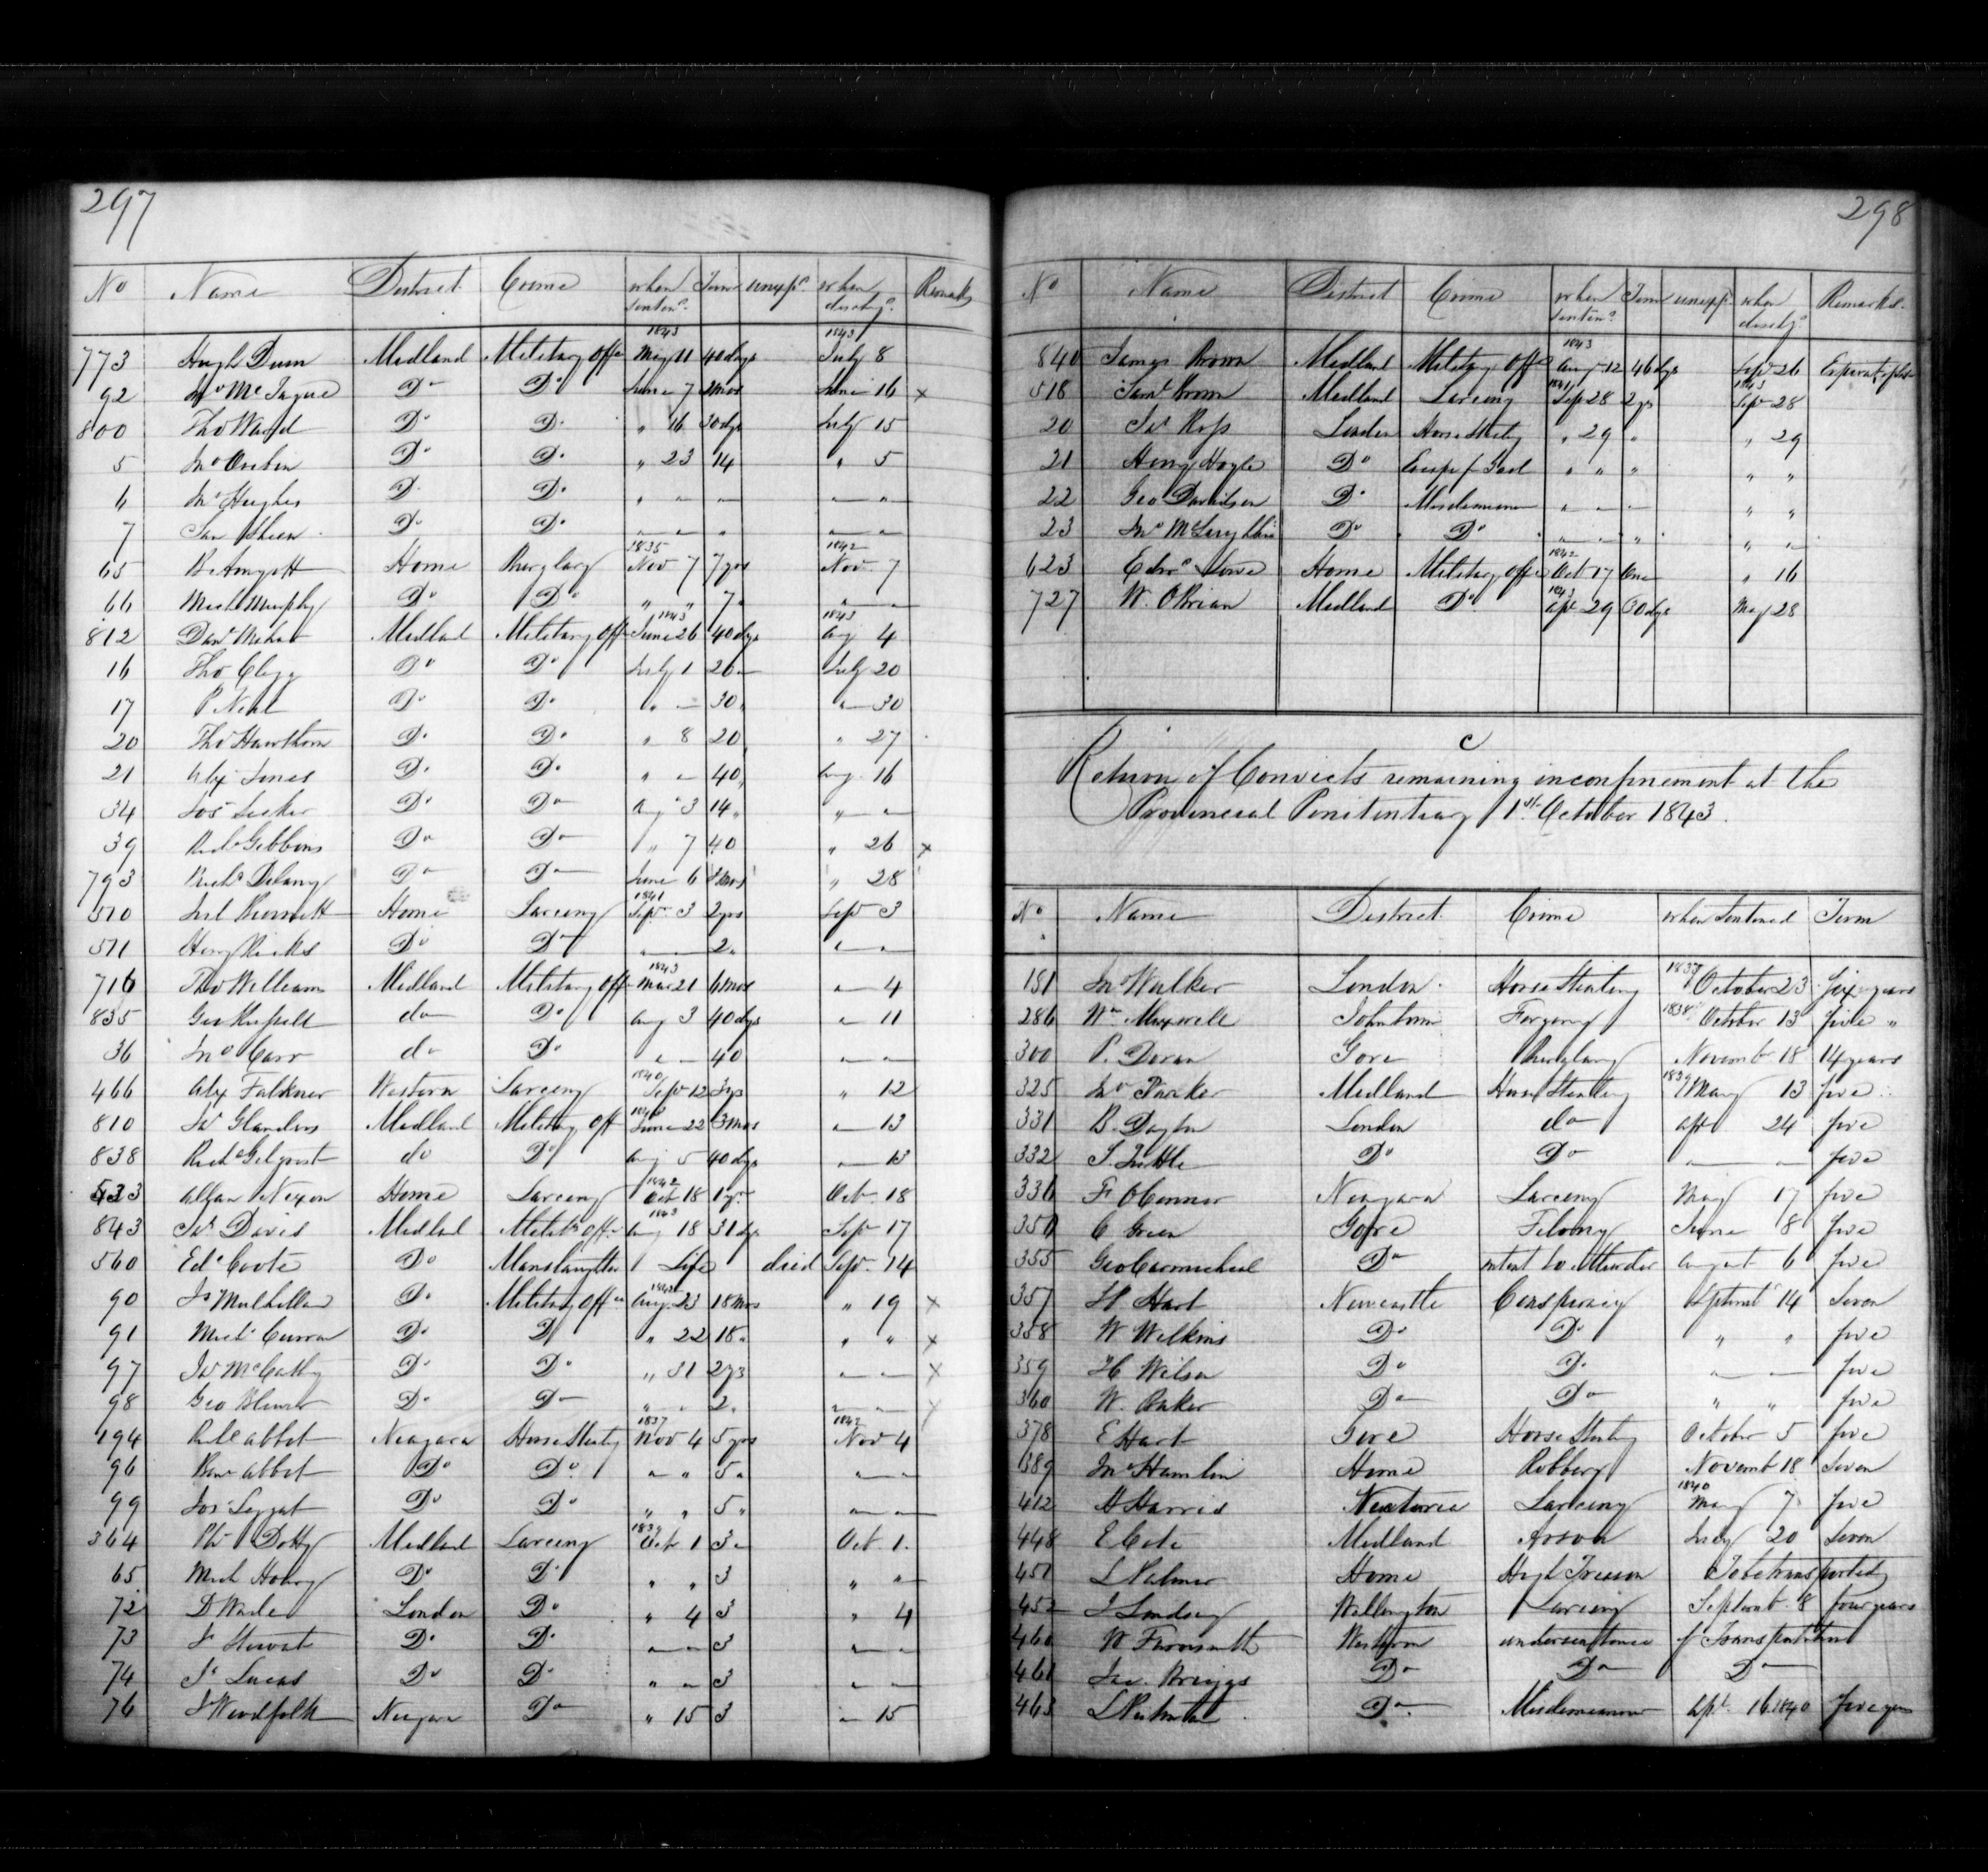 297
No Name District Crime when sentenᵈ Term unexpᵈ when dischgᵈ Remarks
773 Hugh Dunn Midland Military Offe 1843 May 11 40 days 1843 July 8
92 Jnº McTague Dº Dº June 7 2 mos June 16 x
800 Thoˢ Ward Dº Dº " 16 30 dys July 15
5 Jnº Dº Dº " 23 14 " 5
6 Jnº Hughes Dº Dº " " " " "
7 Dº Dº " " " " "
65 Home Burglary 1835 Nov 7 7 yrs 1842 Nov. 7
66 Michˡ Murphy Dº Dº " " 7 " "
812 Danˡ Midland Military Off 1843 June 26 40 dys 1843 Aug 4
16 Thoˢ Clegg Dº Dº July 1 20 " July 20
17 P Neal Dº Dº " " 30 " " 30
20 Thoˢ Hawthorn Dº Dº " 8 20 " 27
21 Alexʳ Jones Dº Dº " " 40 " Aug. 16
34 Josʰ Dº Dº Aug 3 14 " " "
39 Richᵈ Gibbons Dº Dº " 7 40 " 26 x
793 Richᵈ Delany Dº Dº June 6 3 mos " 28
510 Bennett Home Larceny 1841 Sepʳ 3 2 yrs Sepʳ 3
511 Henry Hicks Dº Dº " " 2 " " "
716 Thoˢ William Midland Military Off 1843 Mar 21 6 mos " 4
835 Geo Russell do Dº Aug 3 40 dys " 11
36 Jnº Carr do Dº " " 40 " "
466 Alex Falkner Western Larceny 1840 Sepʳ 12 3 ys " 12
810 Jaˢ Glanders Midland Military Off 1843 June 22 3 mos " 13
838 Richᵈ Gilgrist do Dº Aug 5 40 dys " 13
533 Allan Nixon Home Larceny 1842 Oct 18 1 yr Oct. 18
843 Jaˢ Davis Midland Militʸ Off 1843 Aug 18 31 dys Sepʳ 17
560 Edᵈ Coote Dº Manslaughter Life died Sepʳ 14
90 Jˢ Mulhollan Dº Military Off 1842 Aug. 23 18 mos " 19 x
91 Michˡ Curran Dº Dº " 22 18 " " " x
97 Jaˢ McCathy Dº Dº " 31 2 yrs " " x
98 Geo Dº Dº " " 2 " " " x
194 Abbot Niagara Horse Stealing 1837 Nov 4 5 yrs 1842 Nov 4
96 Benʲ Abbot Dº Dº " " 5 " " "
99 Josʰ Leggat Dº Dº " " 5 " " "
364 Dotty Midland Larceny 1839 Octʳ 1 3 " Oct 1.
65 Mich Dº Dº " " 3 " "
72 D Wade London Dº " 4 3 " 4
73 Jˢ Stewart Dº Dº " " 3 " "
74 Jˢ Lucas Dº Dº " " 3 " "
76 Jˢ Woodfolk Niagara Dº " 15 3 " 15
298
Nº Name District Crime when Sentenᵈ Term unexpᵈ when dischgᵈ Remarks.
840 James Brown Midland Military Offe 1843 Augᵗ 12 46 dys Sepʳ 26
518 Samˡ Brown Midland Larceny 1841 Sep 28 2 ys 1843 Sepʳ 28
20 Jaˢ Ross London Horse Stealing " 29 " " 29
21 Henry Hogle Dº Escape f Gaol " " " " "
22 Geo Davidson Dº Misdemeanor " " " " "
23 Jnº McLaughlin Dº Dº " " " " "
623 Edwᵈ Lowe Home Military Offe 1842 Oct 17 One " 16
727 W. OBrian Midland Dº 1843 Apl 29 30 dys May 28
C
Return of Convicts remaining in confinement at the
Provincial Penitentiary 1ˢᵗ October 1843.
Nº Name District Crime when Sentenced Term
181 Jnº Walker London Horse Stealing October 23 Six years
286 Wᵐ Maxwell Johntown Forgery 1838 October 13 five "
300 P. Doran Gore Burglary Novembʳ 18 14 years
325 Jnº Parker Midland Horse Stealing 1839 May 13 five "
331 B. Dayton London do Apl 24 five
332 T. Tuttle Dº Dº " " five
336 Fˢ OConner Niagara Larceny May 17 five
350 C Green Gore Felony June 8 five
355 Geo Carmicheal Dº intent to Murder August 6 five
357 H. Hart Newcastle Conspiracy Septembʳ 14 Seven
358 W Wilkins Dº Dº " " five
359 H Wilson Dº Dº " " five
360 W. Baker Dº Dº " " five
378 E Hart Gore Horse Stealing October 5 five
389 Jnº Hamlin Home Robbery Novembʳ 18 Seven
412 H Harris Larceny 1840 May 7 five
448 E Cole Midland Arson July 20 Seven
451 L Palmer Home High Treason To be transported
452 J Lindsey Wellington Larceny Septembʳ 8 four years
460 W Western under sentence of Transportation
461 Jaˢ. Briggs Dº Dº Dº
463 L Dº Misdemeanor Apl 16 1840 five years